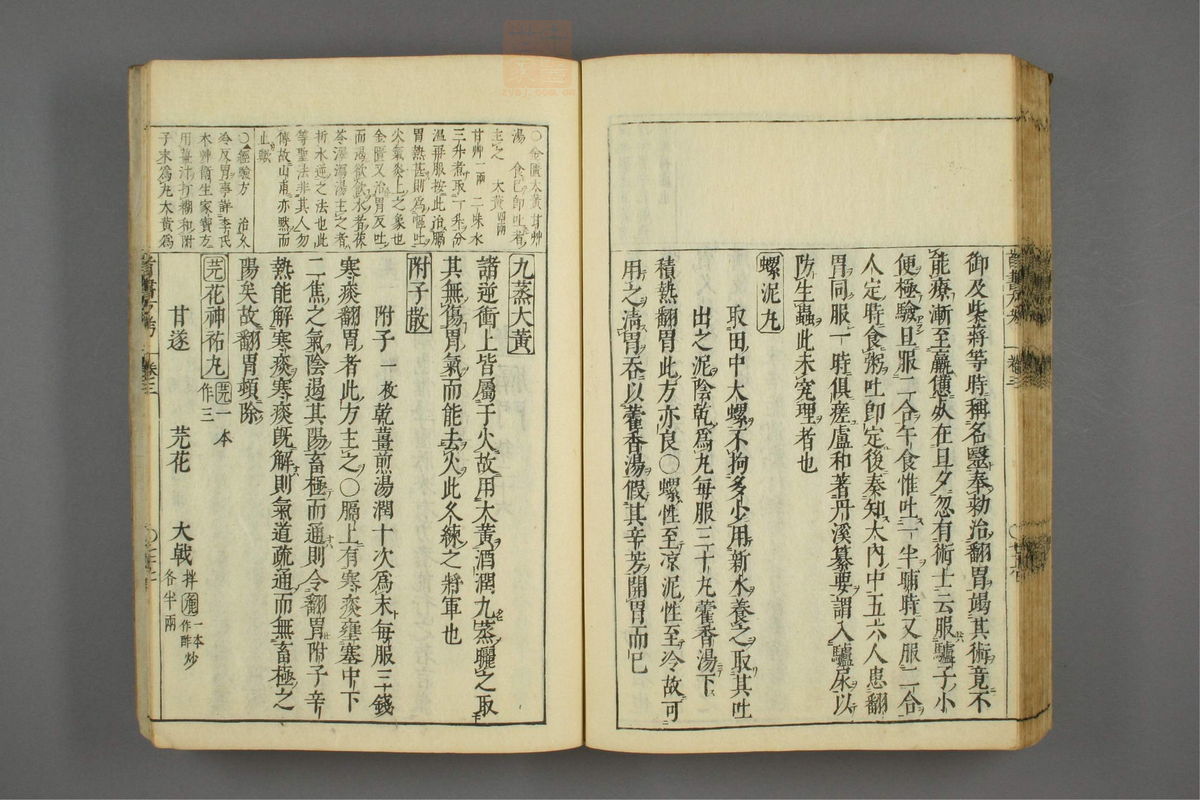 御及柴蔣等時稱名醫奉勅治翻胃竭其術竟不
能療漸至羸憊死在旦夕忽有術士云服驢子小
便極驗旦服二合午食惟吐一半晡時又服二合
人定時食粥吐即定後奏知大內中五六人患翻
胃同服一時俱瘥盧和著丹溪纂要謂入驢尿以
防生蟲此未究理者也
螺泥丸
取田中大螺不拘多少用新水養之取其吐
出之泥陰乾爲丸每服三十丸藿香湯下
積熱翻胃此方亦良○螺性至凉泥性至冷故可
用之清胃吞以藿香湯假其辛芳開胃而已
醫方考 卷三
○金匱大黃甘艸
湯 食已即吐者
主之 大黃四兩
甘艸一兩 二味水
三升煮取一升分
溫再服按此治膈
胃熱甚則爲嘔吐
火氣炎上之象也
金匱又治胃反吐
而渴欲飲水者茯
苓澤瀉湯主之者
折水逆之法也此
等聖法非其人勿
傳故山甫亦黙而
止歟
○經驗方 治久
冷反胃事許李氏
本艸衛生家寶方
用薑汁打糊和附
子末爲丸大黃爲
九蒸大黃
諸逆衝上皆屬于火故用大黃酒潤九蒸曬之取
其無傷胃氣而能去火此久練之將軍也
附子散
附子一枚 乾薑煎湯潤十次爲末每服三錢
寒痰翻胃者此方主之○膈上有寒痰壅塞中下
二焦之氣陰遏其陽畜極而通則令翻胃附子辛
熱能解寒痰寒痰既解則氣道疏通而無畜極之
陽矣故翻胃頓除
芫花神祐丸 芫一本作三
甘遂 芫花 大戟 拌麵一本作醋炒各半兩
醫書方考 卷三